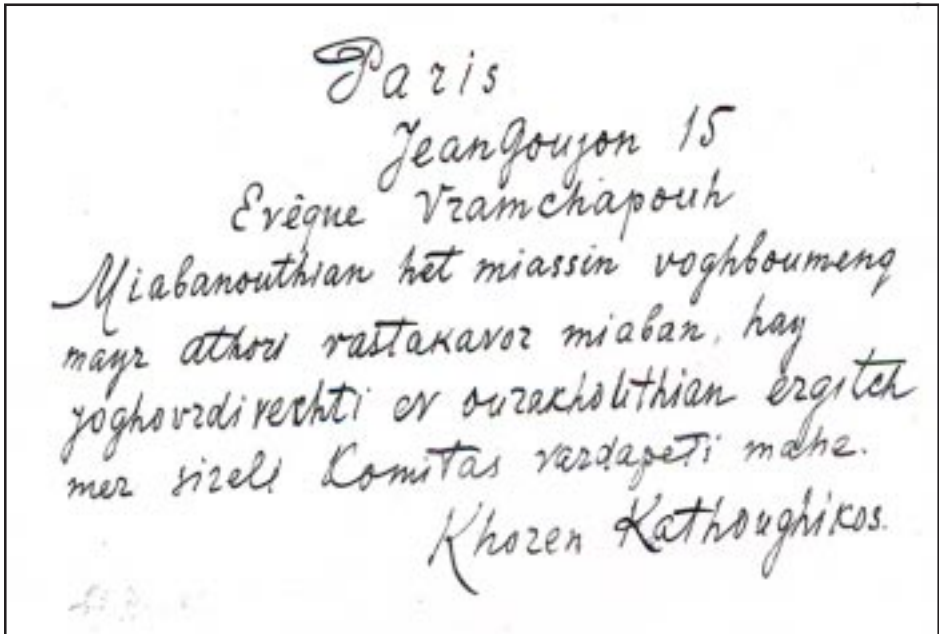 Paris
Jean Goujon 15
Evêque Vramchapouh
Miabanouthian het miassin voghboumenq
mayr athori vastakavor miaban, hay
joghovrdi vechti ev ourakholithian ergitch
mer sireli Komitas vardapeti mahe.
Khoren Kathoughikos.